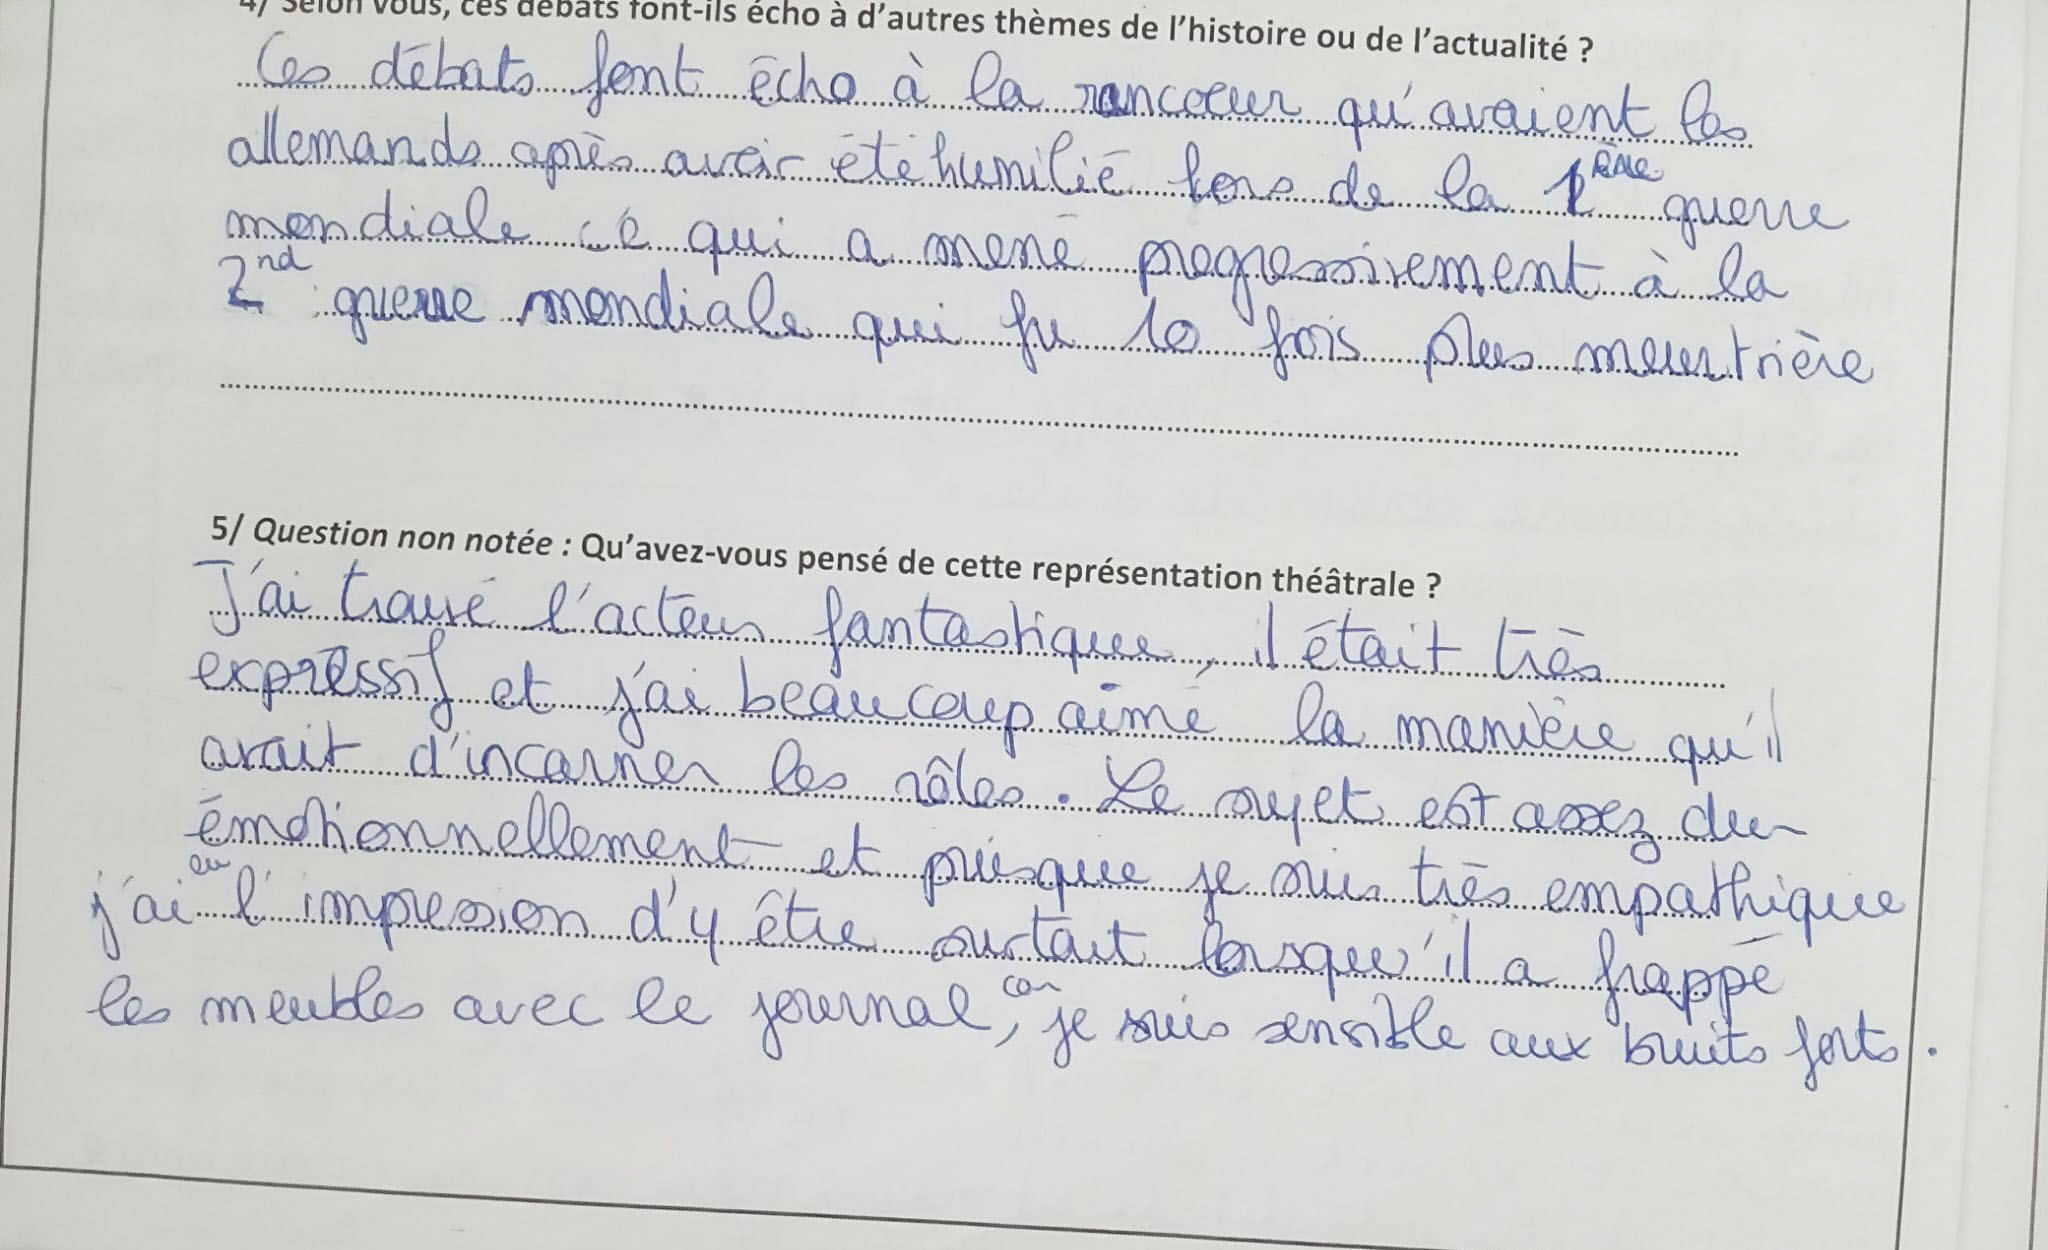 4/ Selon vous, ces débats font-ils écho à d'autres thèmes de l'histoire ou de l'actualité ?
Ces débats font écho à la rancoeur qu'avaient les
allemands après avoir été humilié lors de la 1ère guerre
mondiale ce qui a mené progressivement à la
2nd guerre mondiale qui fu 10 fois plus meurtrière
5/ Question non notée : Qu'avez-vous pensé de cette représentation théâtrale ?
J'ai trouvé l'acteur fantastique, il était très
expressif et j'ai beaucoup aimé la manière qu'il
avait d'incarner les rôles. Le sujet est assez dur
émotionnellement et puisque je suis très empathique
j'ai eu l'impression d'y être surtout lorsqu'il a frappé
les meubles avec le journal, car je suis sensible aux bruits forts.